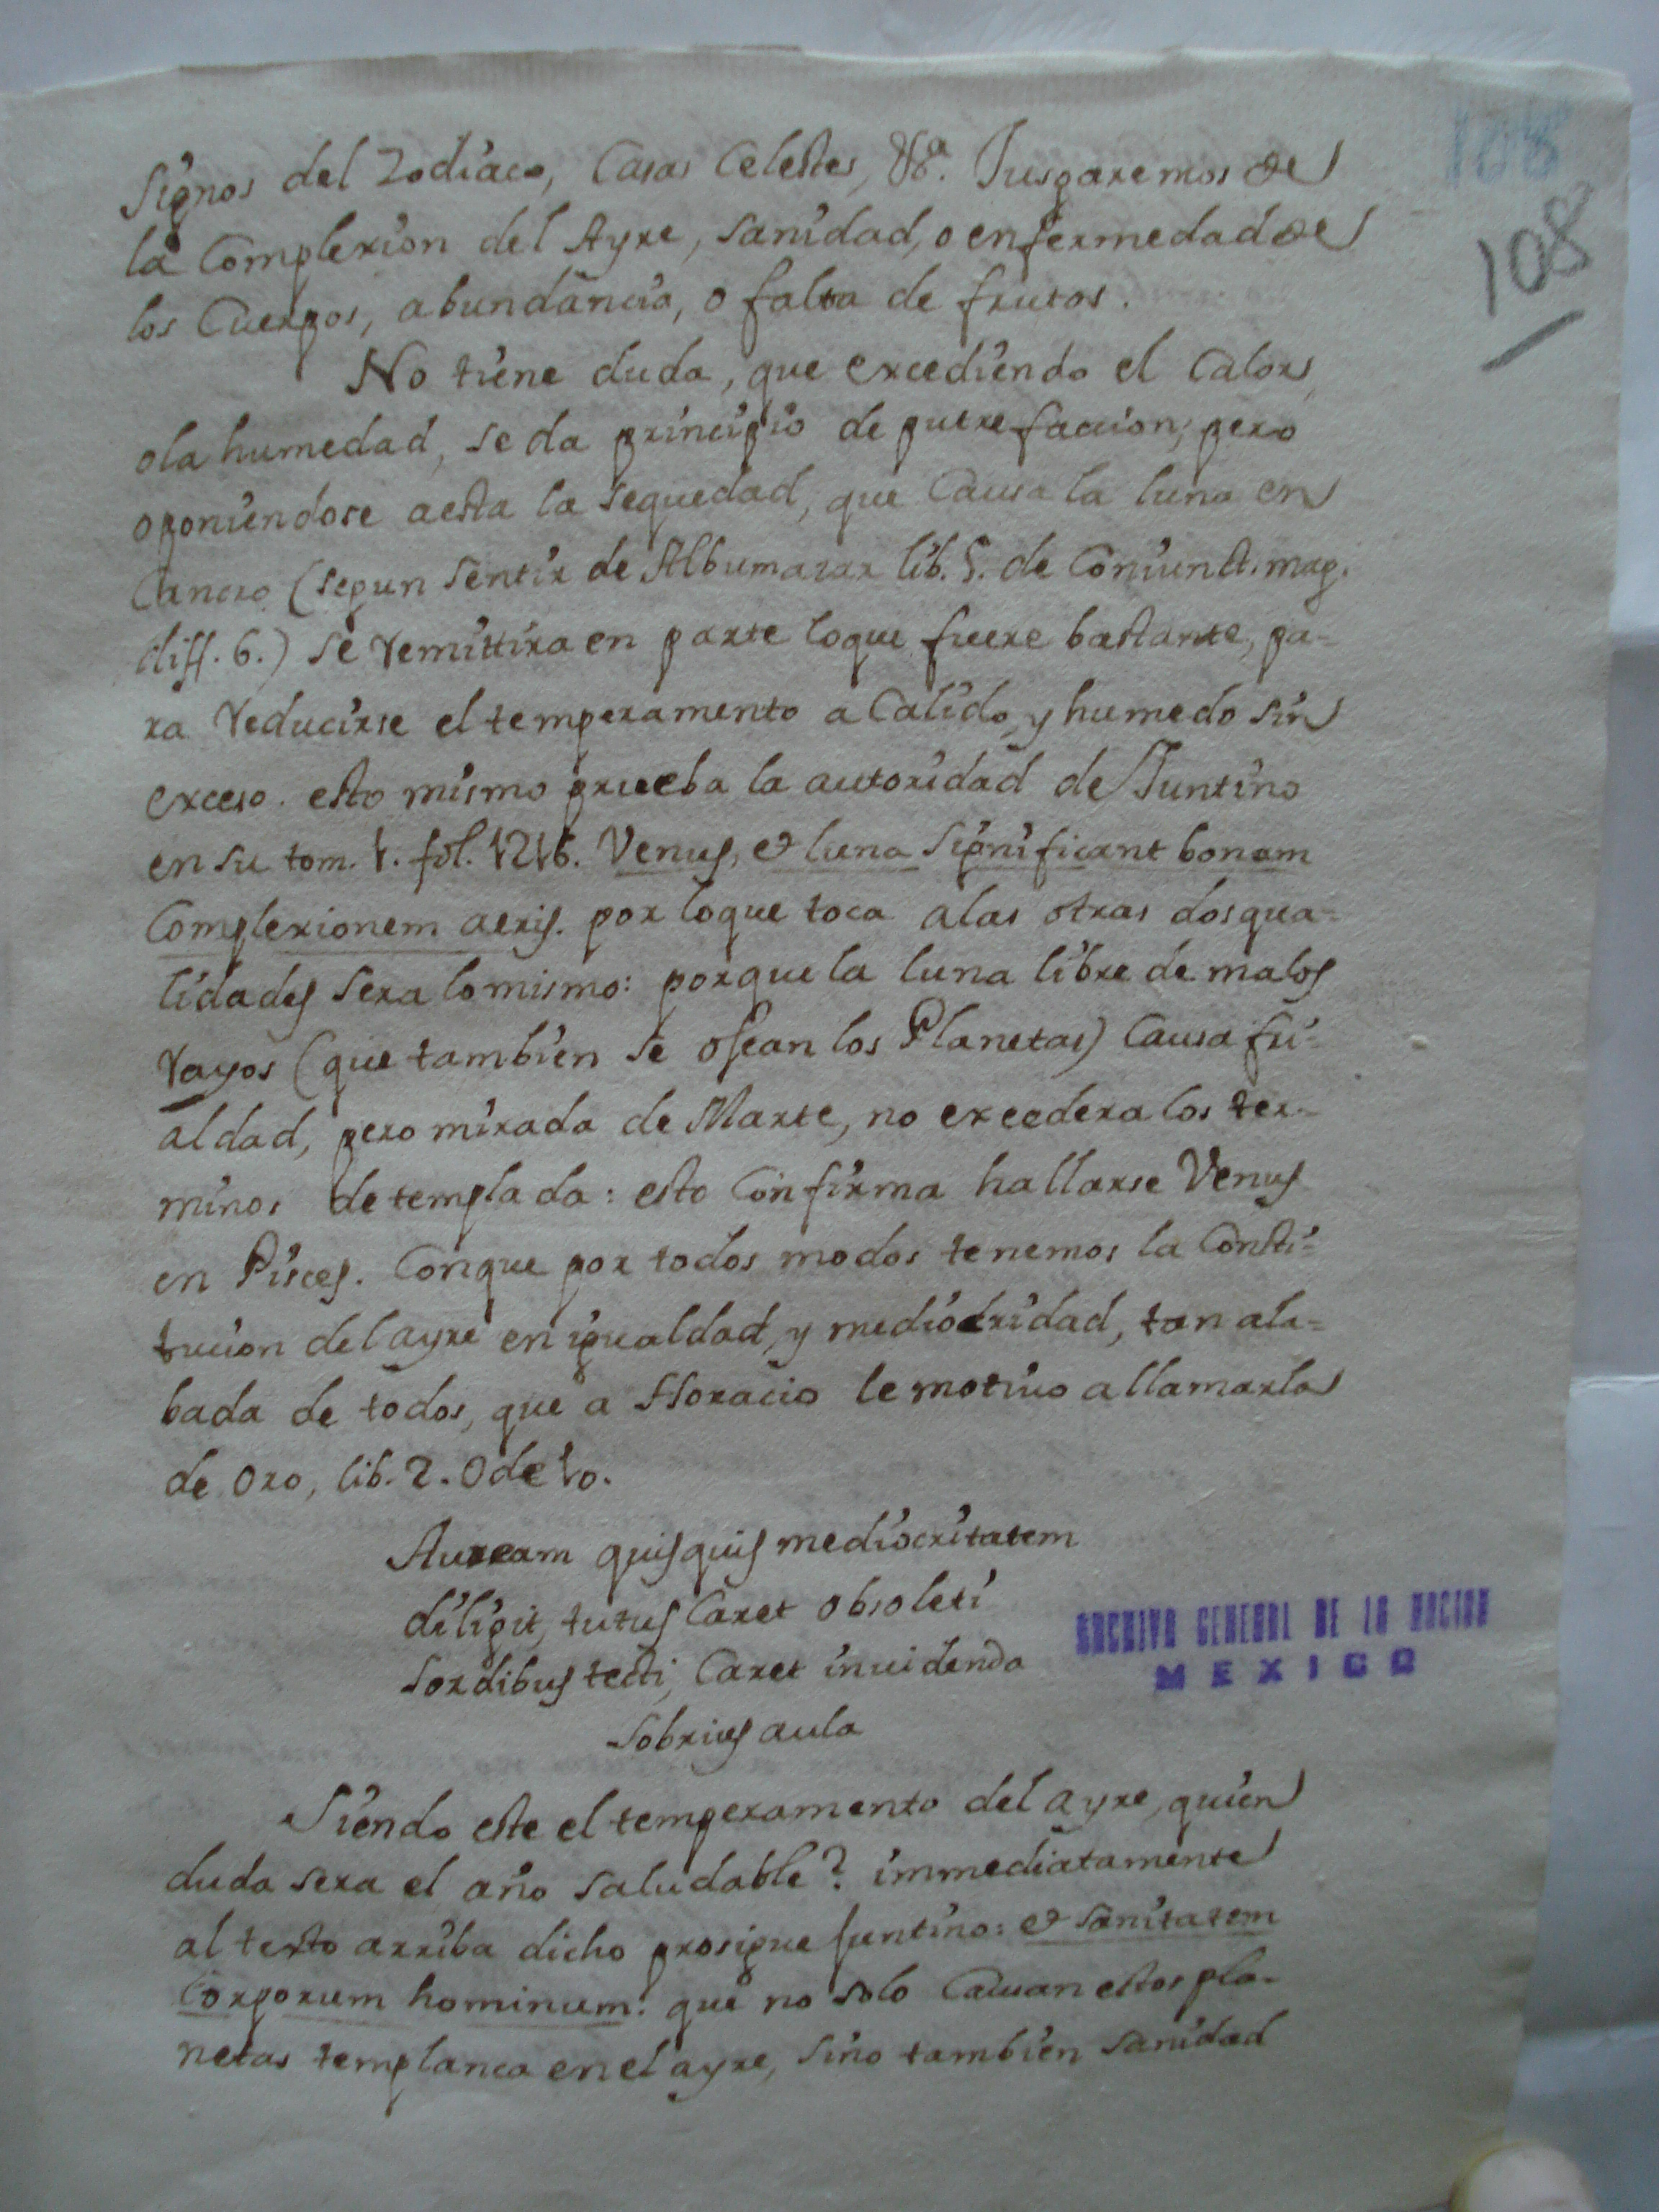 108
108
Signos del Zodiaco, Casas Celestes, &a. Jusgaremos de
la Complexion del Ayre, sanidad, o enfermedad de
los Cuerpos, abundancia, o falta de frutos.
No tiene duda, que excediendo el Calor,
o la humedad, se da principio de putrefaccion; pero
oponiendose a esta la sequedad, que Causa la luna en
Cancro (segun sentir de Albumazar lib. 5. de Coniunct. mag.
diff. 6.) se remittira en parte loque fuere bastante, pa-
ra reducirse el temperamento a Calido, y humedo sin
exceso. esto mismo prueba la autoridad de Juntino
en su tom. 1. fol. 1216. Venus, et luna significant bonam
Complexionem aeris. por loque toca a las otras dos qua-
lidades sera lo mismo: porque la luna libre de malos
rayos (que tambien se osean los Planetas) Causa fri-
aldad, pero mirada de Marte, no excedera los ter-
minos de templada: esto Confirma hallarse Venus
en Pisces. Conque por todos modos tenemos la Consti-
tucion del ayre en igualdad, y mediocridad, tan ala-
bada de todos, que a Horacio le motivo a llamarla
de Oro, lib. 2. Ode 10.
Auream quisquis mediocritatem
diligit, tutus Caret obsoleti
sordibus tecti, Caret invidenda
sobrius aula
Siendo este el temperamento del ayre, quien
duda sera el año saludable? immediatamente
al texto arriba dicho prosigue Juntino: et sanitatem
Corporum hominum: que no solo Causan estos pla-
netas templanca en el ayre, sino tambien sanidad
ARCHIVO GENERAL DE LA NACION
MEXICO